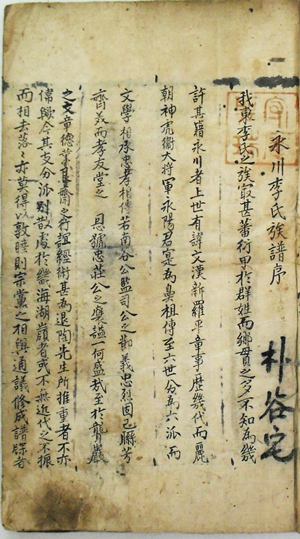 永川李氏族譜序
朴谷宅
我東李氏之族寂甚蕃衍甲於群姓而鄉貫之分不知爲幾
許其籍永川者上世有諱文漢新羅平章事歷幾代而麗
朝神虎衛大將軍永陽君寔爲鼻祖傳至六世分爲六派而
文學相承忠孝相傳若南谷公監司公之卲義忠烈固已聯芳
齊美而孝友堂之 恩號忠莊公之奧諡何盛哉至於聾巖
之文章德業 之行誼經術甚爲退陶先生所推重者不亦
偉歟今其支分派別散處於畿海湖嶺者或不無近代之不振
而相去落落亦莫得以敦睦則宗黨之相與通議修成譜牒者